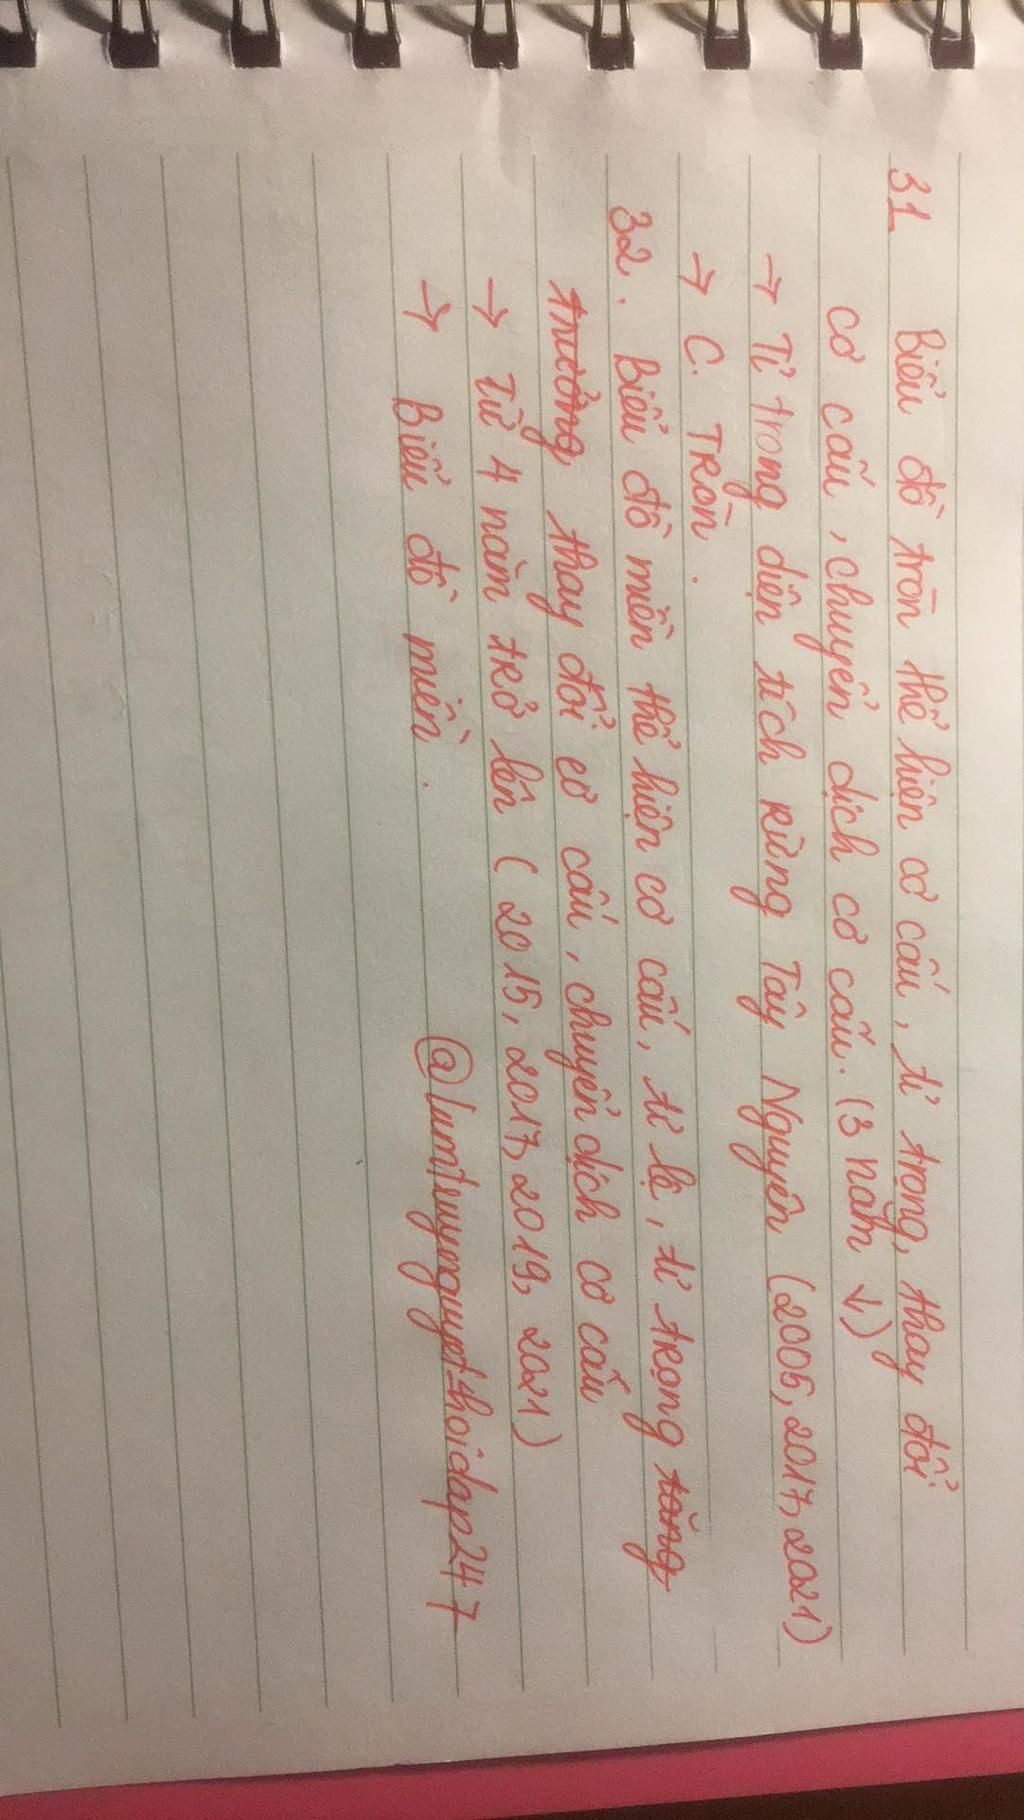 31 Biểu đồ tròn thể hiện cơ cấu, tỉ trọng, thay đổi
cơ cấu, chuyển dịch cơ cấu. (3 năm ↓)
→ Tỉ trọng diện tích rừng Tây Nguyên (2005, 2017, 2021)
→ C. Tròn.
32. Biểu đồ miền thể hiện cơ cấu, tỉ lệ, tỉ trọng tăng
trưởng thay đổi cơ cấu, chuyển dịch cơ cấu
→ Từ 4 năm trở lên (2015, 2017, 2019, 2021)
→ Biểu đồ miền.